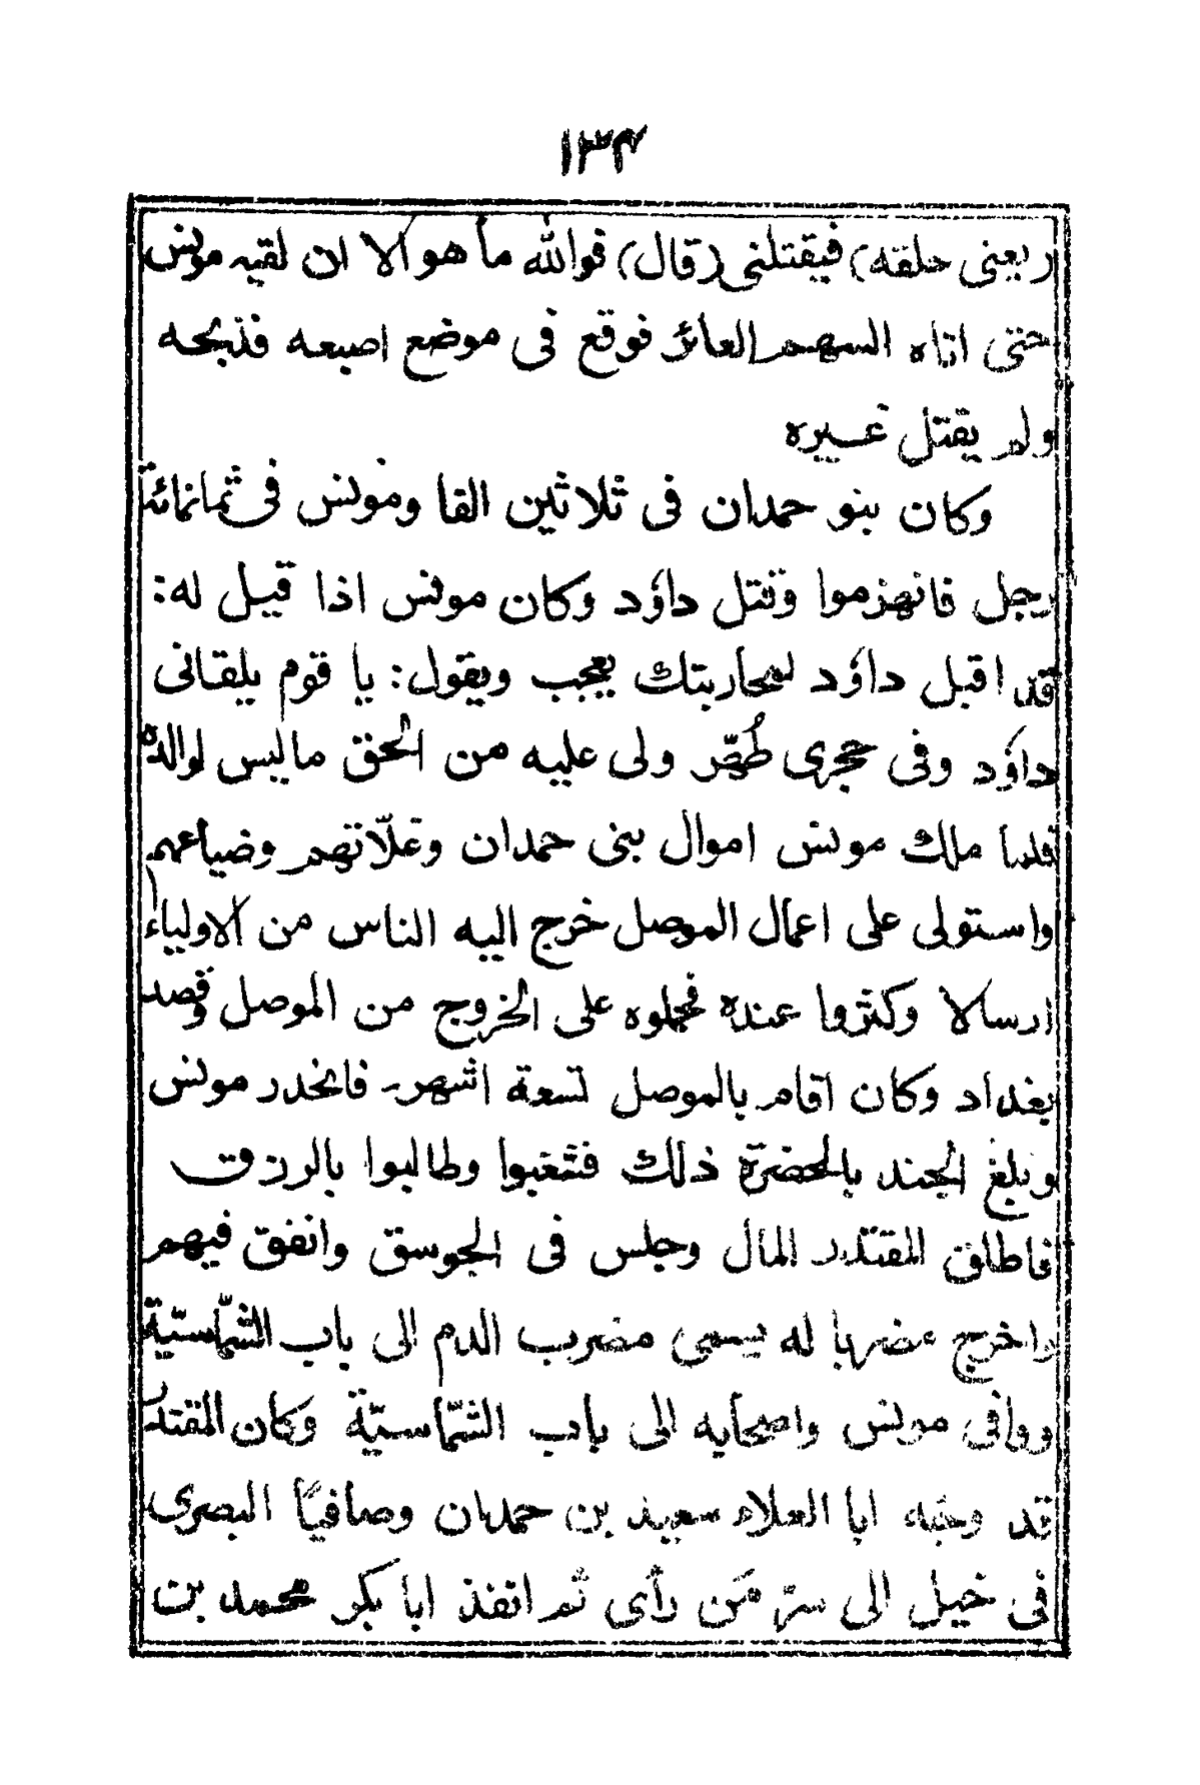 ١٣٤
(يعنى حلقه) فيقتلنى (قال) فوالله ما هو الا ان لقيه مونس
حتى اتاه السهم العائر فوقع فى موضع اصبعه فذبحه
ولم يقتل غيره
وكان بنو حمدان فى ثلاثين الفا ومونس فى ثمانمائة
رجل فانهزموا وقتل داؤد وكان مونس اذا قيل له:
قد اقبل داؤد لمحاربتك يعجب ويقول: يا قوم يلقانى
داؤد وفى حجرى طُهّر ولى عليه من الحق ماليس لوالده
فلما ملك مونس اموال بنى حمدان وغلّاتهم وضياعهم
واستولى على اعمال الموصل خرج اليه الناس من الاولياء
ارسالا وكثروا عنده فحملوه على الخروج من الموصل وقصد
بغداد وكان اقام بالموصل تسعة اشهر فانحدر مونس
وبلغ الجند بالحضرة ذلك فشغبوا وطالبوا بالرزق
فاطلق المقتدر المال وجلس فى الجوسق وانفق فيهم
واخرج مضربا له يسمى مضرب الدم الى باب الشمّاسيّة
ووافى مونس واصحابه الى باب الشمّاسيّة وكان المقتدر
قد وجّه ابا العلاء سعيد بن حمدان وصافيًا البصرى
فى خيل الى سرّ مَن رأى ثم انفذ ابا بكر محمد بن